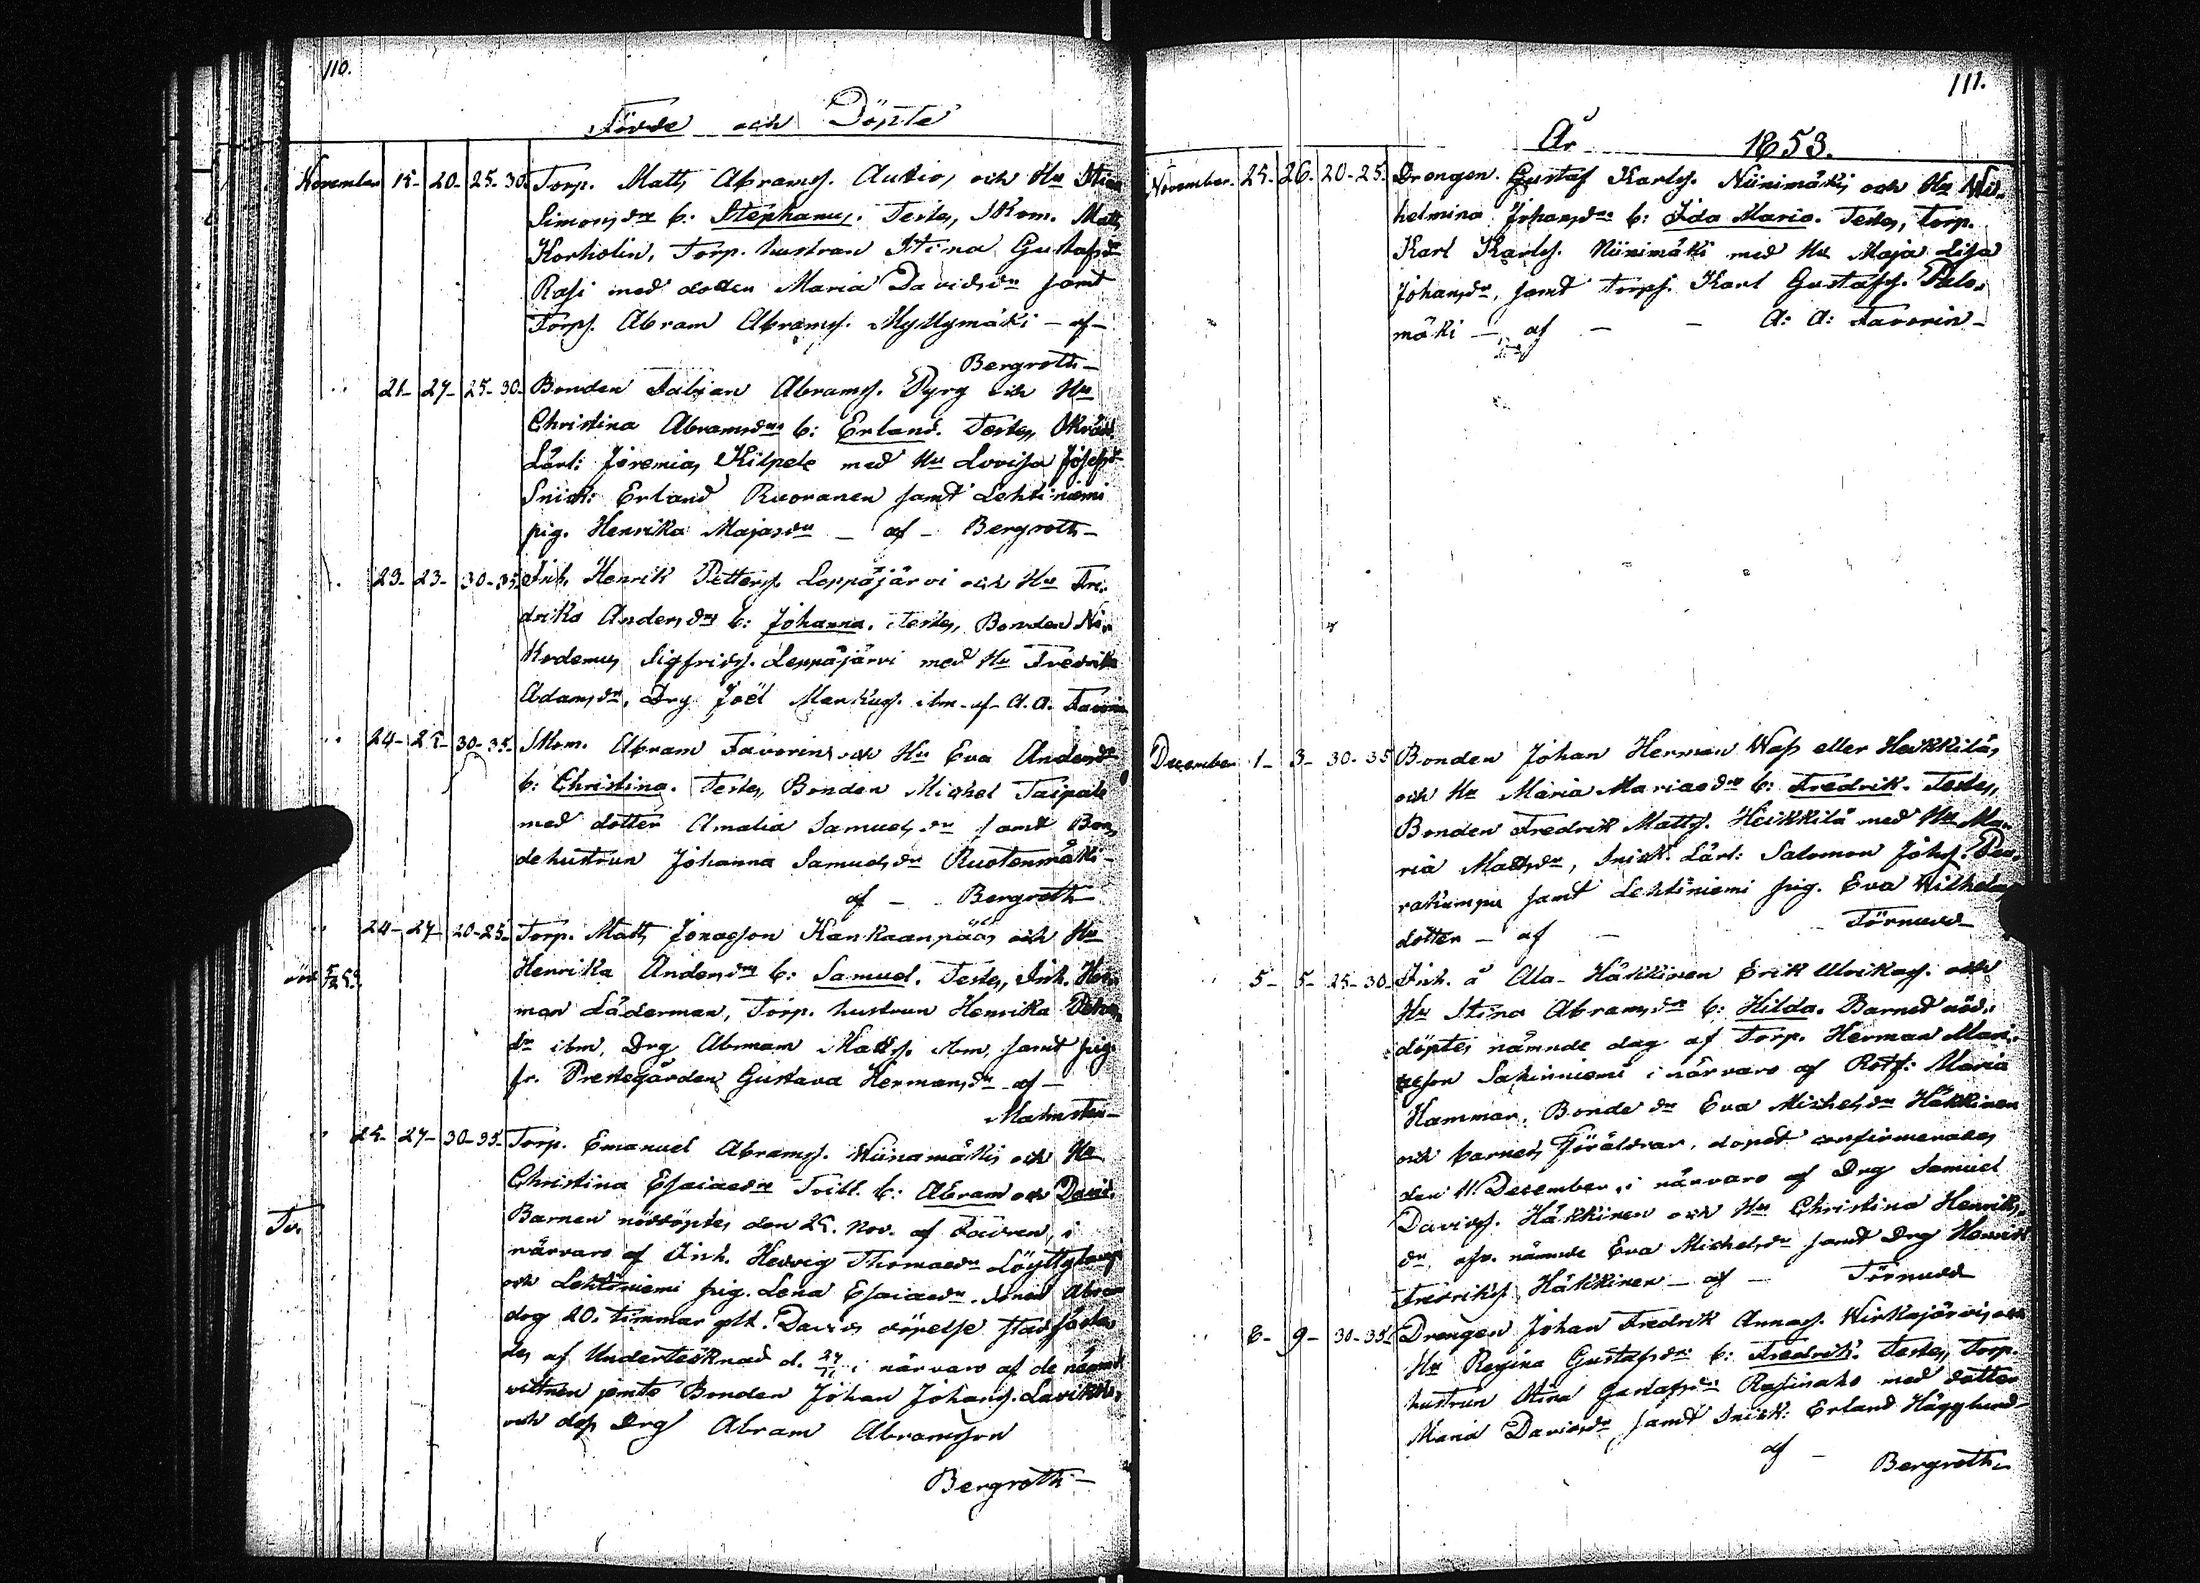 110.
Födde och Döpte
November 15- 20- 25-30. Torp. Matts Abramss. Autio, och Hu Stina
Simonsdr b: Stephanus. Testes, Skom. Matts
Korholin, Torp. hustrun Stina Gustafsdr
Rasi med dotter Maria Davidsdr samt
Torps. Abram Abramss. Myllymäki - af -
Bergroth -
21- 27- 25-30- Bonden Fabian Abramss. Pyrg och Hu
Christina Abramsdr b: Erland. Testes, Skrädd.
Lärl: Jeremias Kilpele med Hu Lovisa Josefsdr
Snick: Erland Ruoranen samt Lehtiniemi
pig. Henrika Majasdr - af - Bergroth -
23- 23- 30-35 Inh. Henrik Petterss. Leppäjärvi och Hu Fre-
drika Andersdr b: Johanna. Testes, Bonden Ni-
kodemus Sigfridss. Leppäjärvi med Hu Fredrika
Adamsdr, Drg Joël Markuss. ibm - af A. A. Favorin
24- 25- 30-35. Skom. Abram Favorin och Hu Eva Andersdr
b: Christina. Testes, Bonden Michel Taipale
med dotter Amalia Samuelsdr samt Bon-
dehustrun Johanna Samuelsdr Ruotenmäki -
af - Bergroth
24- 27- 20-25. Torp. Matts Jonasson Kankaanpää, och Hu
Henrika Andersdr b: Samuel. Testes, Inh. Her-
man Läderman, Torp. hustrun Henrika
dr ibm, Drg Abraham Matss. ibm, samt pig.
fr. Prestegården Gustava Hermansdr - af -
Malmsten -
25- 27- 30-35- Torp. Emanuel Abramss. Niinamäki, och Hu
Christina Esaiaedr Tvill. b: Abram och David.
Barnen nöddöptes den 25. Nov. af Fadren, i
Tv. närvaro af Inh. Hedvig Thomaedr
och Lehtiniemi pig. Lena Esaiaedr. Abram
dog 20. timmar glt. Davids döpelse stadfästa-
des af Undertecknad d. 27/11 i närvaro af de nämnde
vittnen jemte Bonden Johan Johanss. Lavikko,
och dess Drg Abram Abramsson
Bergroth -
111.
År 1853.
November. 25. 26. 20-25. Drengen Gustaf Karlss. Niinimäki, och Hu Wil-
helmina Johansdr b: Ida Maria. Testes, Torp.
Karl Karlss. Niinimäki med Hu Maja Lisa
Johansdr, samt Torps. Karl Gustafss. Palo-
mäki - af - - A: A: Favorin -
December 1- 3- 30-35 Bonden Johan Herman Wass eller Heikkilä,
och Hu Maria Mariaedr b: Fredrik. Testes,
Bonden Fredrik Matts. Heikkilä med Hu Ma-
ria Mattsdr, Snick: Lärl: Salomon Johss.
samt Lehtiniemi pig. Eva Wilhelms
dotter - af - Törnudd
5- 5- 25-30- Inh. å Ala-Häkkinen Erik Ulrikass. och
Hu Stina Abramsdr b: Hilda. Barnet nöd-
döptes nämnde dag af Torp. Herman
Sahinniemi i närvaro af Rotf: Maria
Hammar, Bonde dr Eva Michelsdr Häkkinen
och barnets Föräldrar, dopet confirmerades
den 11 December, i närvaro af Drg Samuel
Davidss. Häkkinen och Hu Christina Henriks-
dr, ofv. nämnde Eva Michelsdr samt Drg Henrik
Fredrikss. Häkkinen - af - Törnudd
6- 9- 30-35. Drengen Johan Fredrik Annass. Wirkajärvi, och
Hu Regina Gustafsdr b: Fredrik. Testes, Torp.
hustrun Stina Gustafsdr Rasinaho med dotter
Maria Davidsdr, samt Snick: Erland Hägglund -
af - Bergroth -